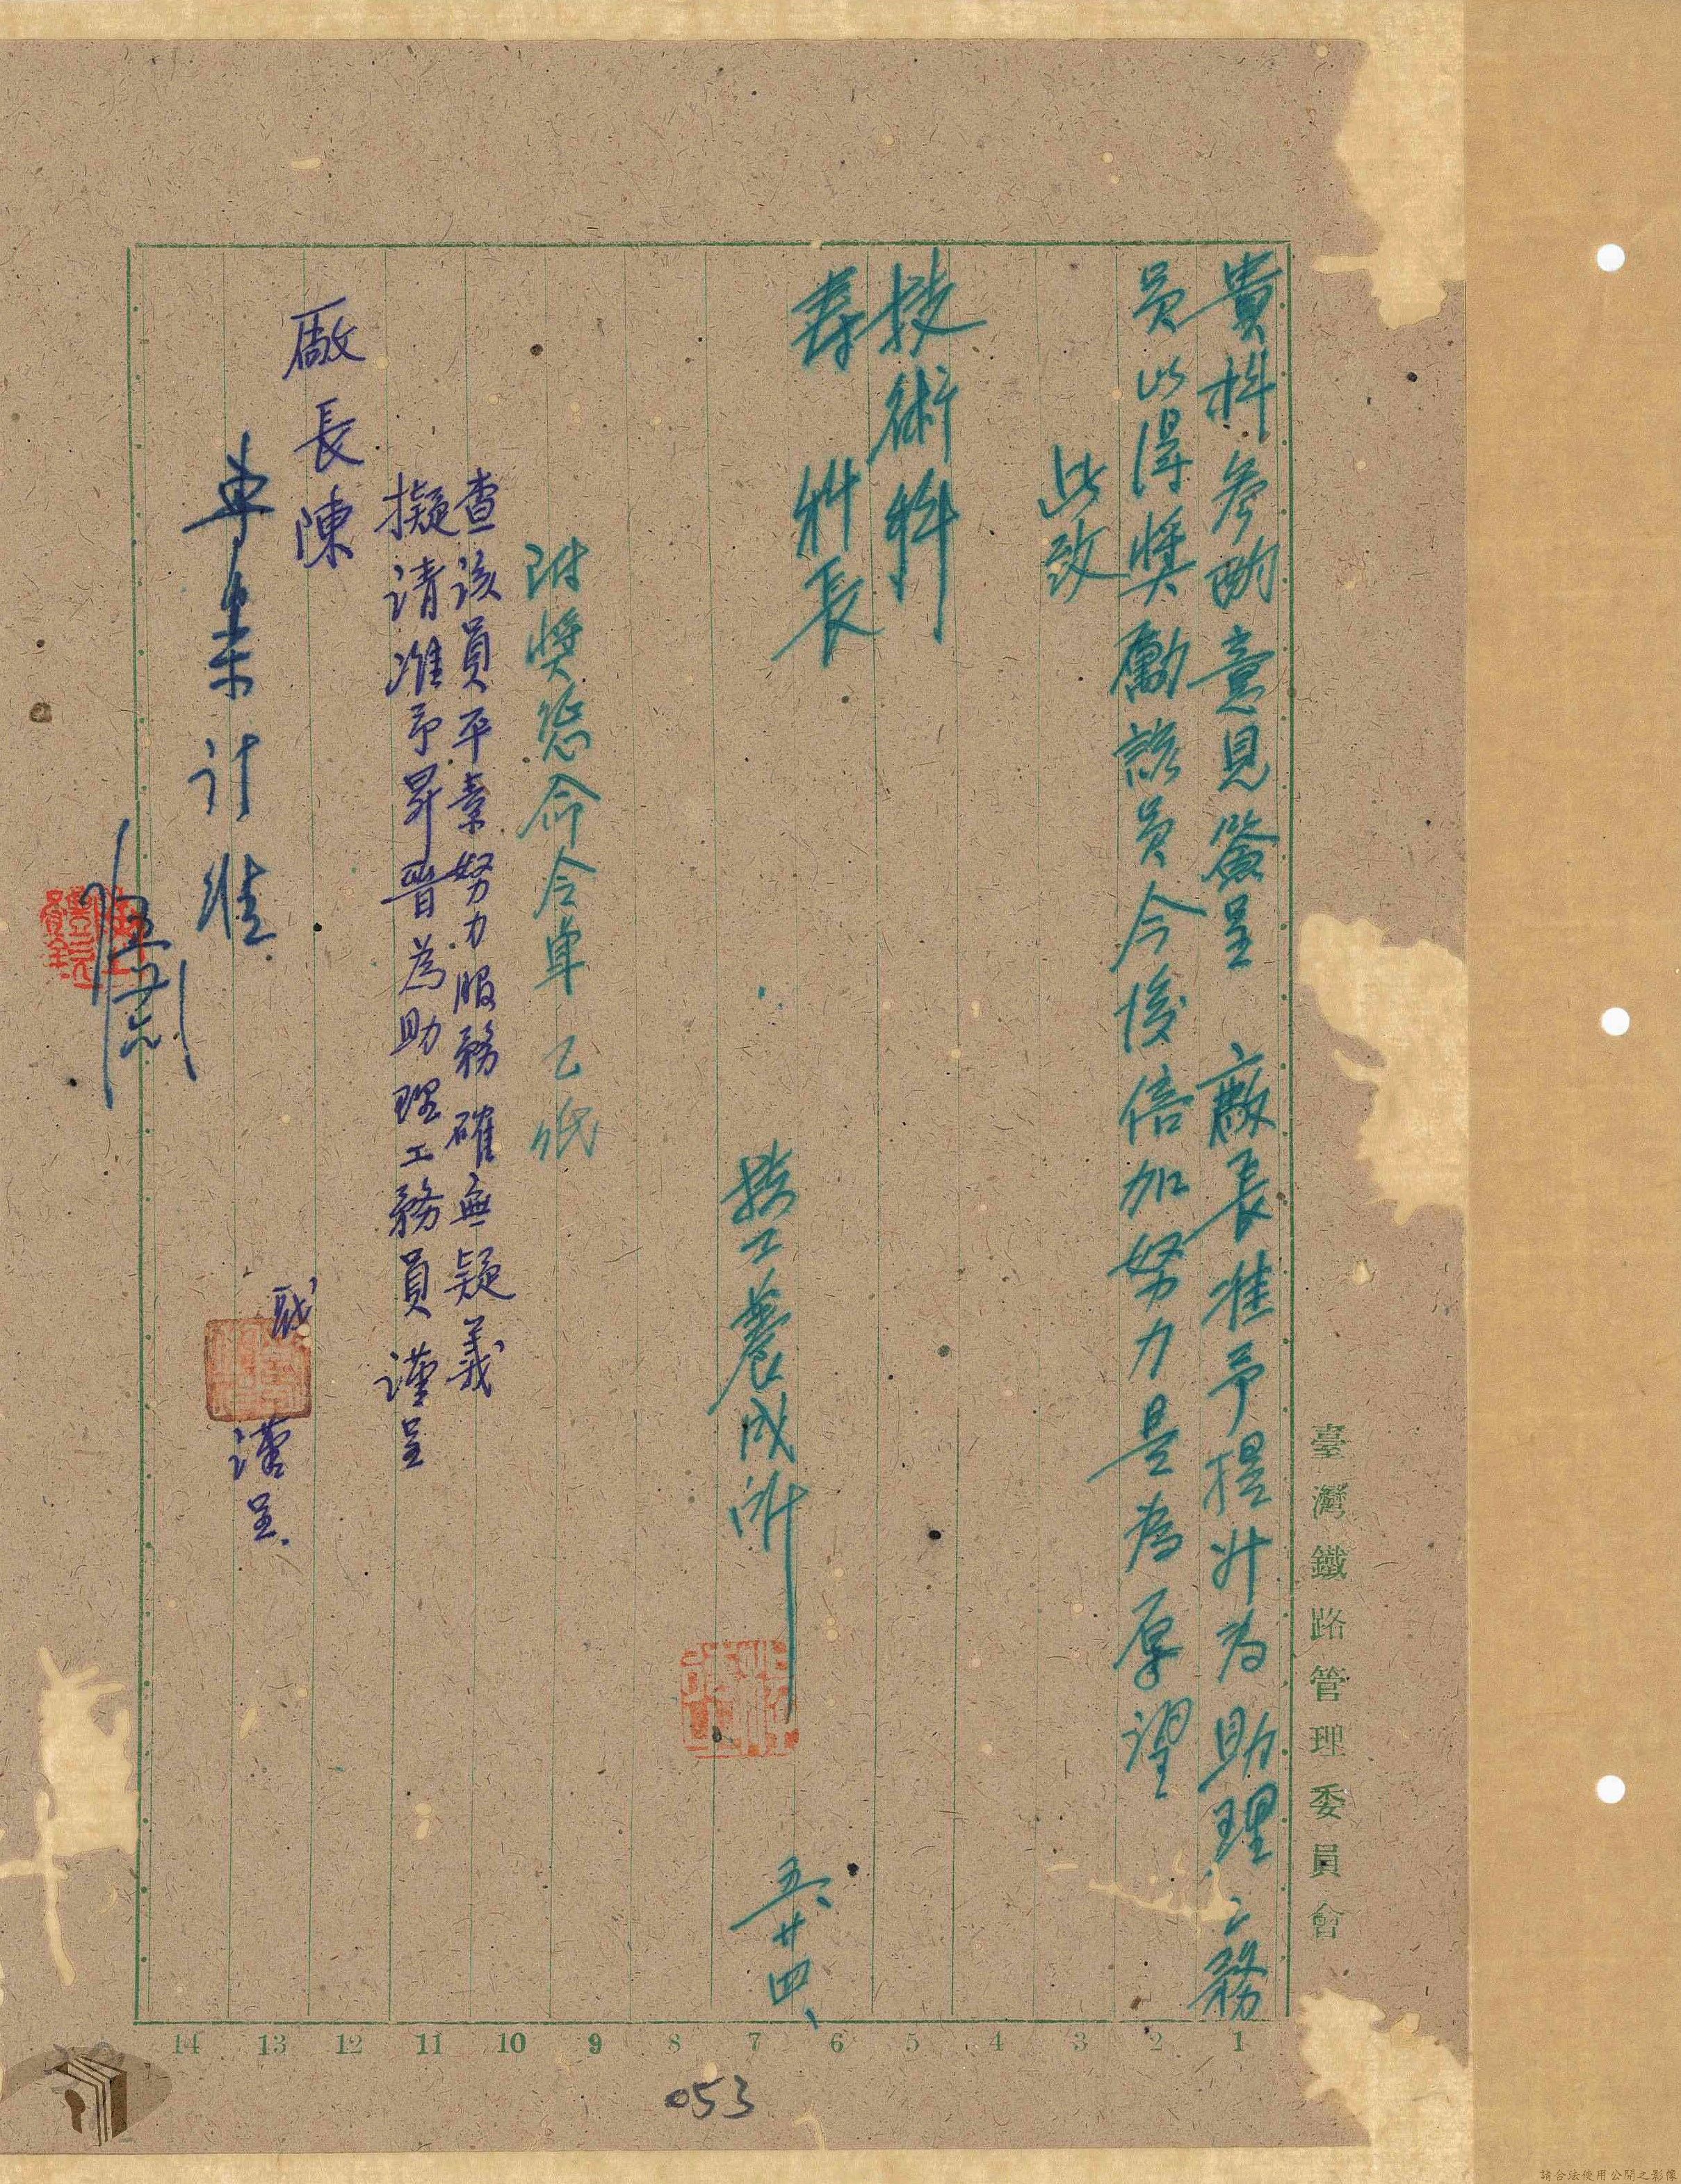 臺灣鐵路管理委員會
貴科參酌意見簽呈　廠長准予提升為助理工務
員以得獎勵該員今後倍加努力是為厚望
此致
技術科
科長
技工養成所
五、廿四、
附獎懲命令單乙紙
查該員平素努力服務確無疑義
擬請准予昇晉為助理工務員謹呈
廠長陳
謹呈
計准
1 2 3 4 5 6 7 8 9 10 11 12 13 14
053
請合法使用公開之影像